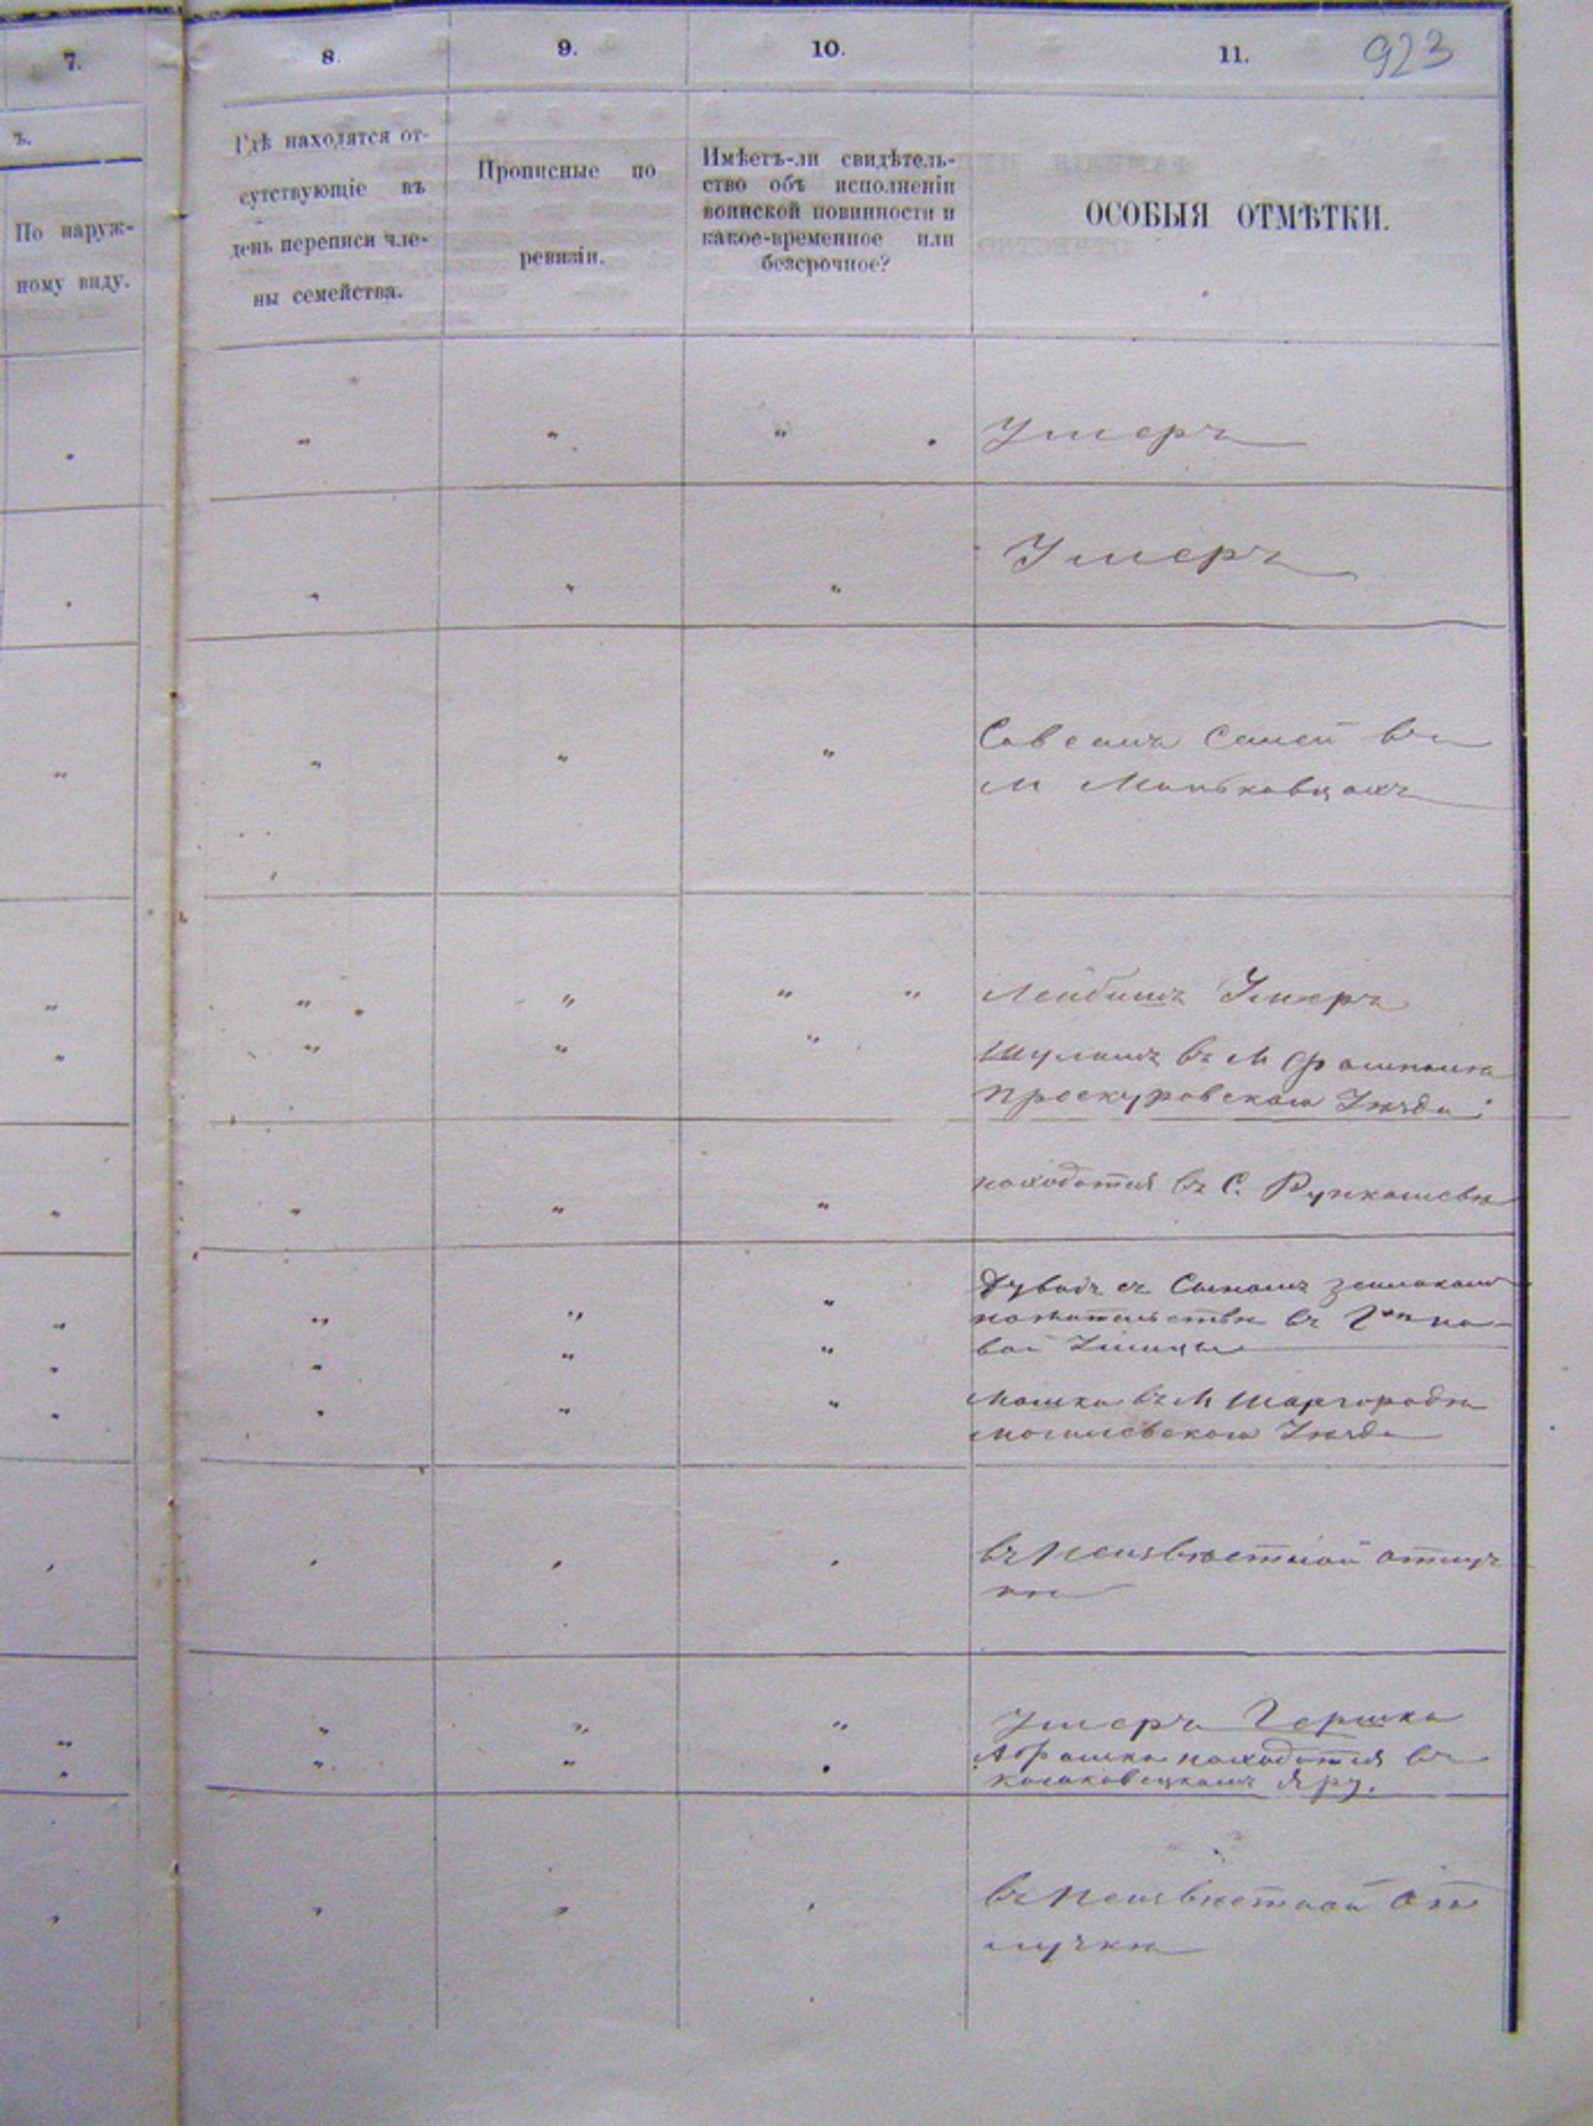 7.
8.
9.
10.
11.
923
ъ.
По наруж-
ному виду.
Гдѣ находятся от-
сутствующіе въ
день переписи чле-
ны семейства.
Прописные по
ревизіи.
Имѣетъ-ли свидѣтель-
ство объ исполненіи
воинской повинности и
какое-временное или
безсрочное?
ОСОБЫЯ ОТМѢТКИ.
Умеръ
Умеръ
Со всемъ Семей въ
м Миньковцахъ
Лейбишъ Умеръ
Шулимъ въ М
Проскуровскаго Уѣзда
находится въ С.
Дувидъ съ Сыномъ
жительстви въ
вой Ушицы
Мошко въ М Шаргородѣ
могилевскаго Уѣзда
въ Неизвѣстной отлуч
кѣ
Умеръ Гершко
Абрашко находится въ
Яру.
въ Неизвѣстной От
лучкѣ